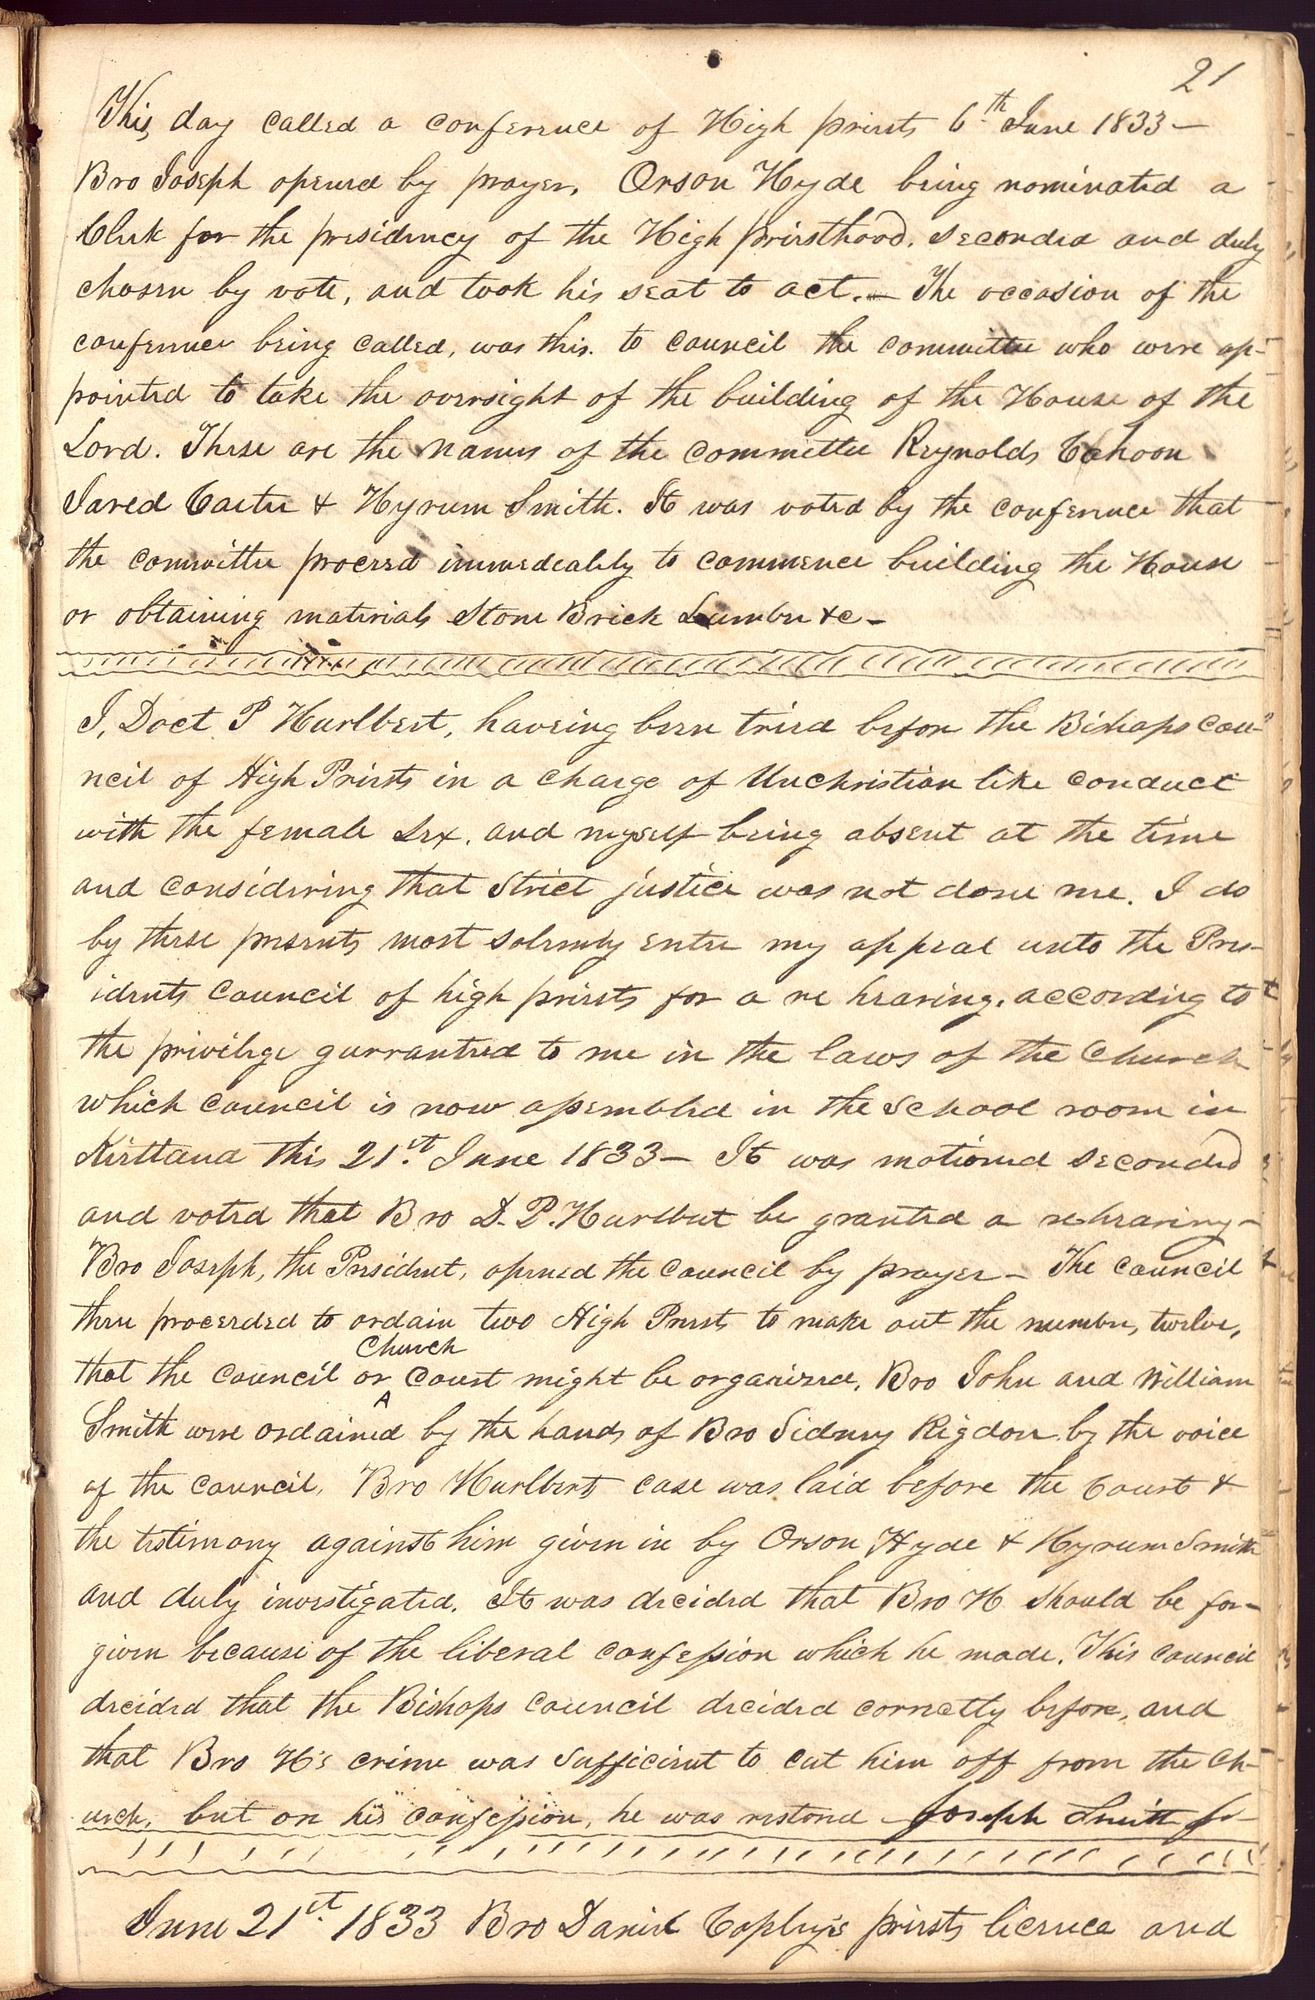 21
This day called a conference of High priests 6th June 1833—
Bro Joseph opened by prayer, Orson Hyde being nominated a
Clerk for the presidency of the High priesthood, seconded and duly
chosen by vote, and took his seat to act.— The occasion of the
conference being called, was this. to council the committee who were ap-
pointed to take the oversight of the building of the House of the
Lord. These are the names of the committee Reynolds Cahoon
Jared Carter & Hyrum Smith. It was voted by the conference that
the committee proceed immedeately to commence building the House
or obtaining materials Stone Brick Lumber &c—
I, Doct P Hurlbert, haveing been tried before the Bishops cou-
ncil of High Priests in a charge of Unchristian like conduct
with the female Sex, and myself being absent at the time
and considering that strict justice was not done me. I do
by these presents most solemnly enter my appeal unto the Pres-
idents council of high priests for a re hearing, according to
the privilege gurranteed to me in the laws of the Church
which council is now assembled in the school room in
Kirtland this 21st June 1833— It was motioned seconded
and voted that Bro D. P. Hurlbut be granted a rehearing—
Bro Joseph, the President, opened the council by prayer— The council
then proceeded to ordain two High Priests to make out the number, twelve,
Church
that the council or court might be organized, Bro John and William
Smith were ordained by the hands of Bro Sidney Rigdon by the voice
of the council, Bro Hurlberts case was laid before the Court &
the testimony against him given in by Orson Hyde & Hyrum Smith
and duly investigated. It was decided that Bro H should be for-
given because of the liberal confession which he made. This council
decided that the Bishops council decided correctly before, and
that Bro H's crime was sufficient to cut him off from the Ch-
urch, but on his confession, he was restored Joseph Smith Jr—
June 21st 1833 Bro Daniel Copley's priests licence and